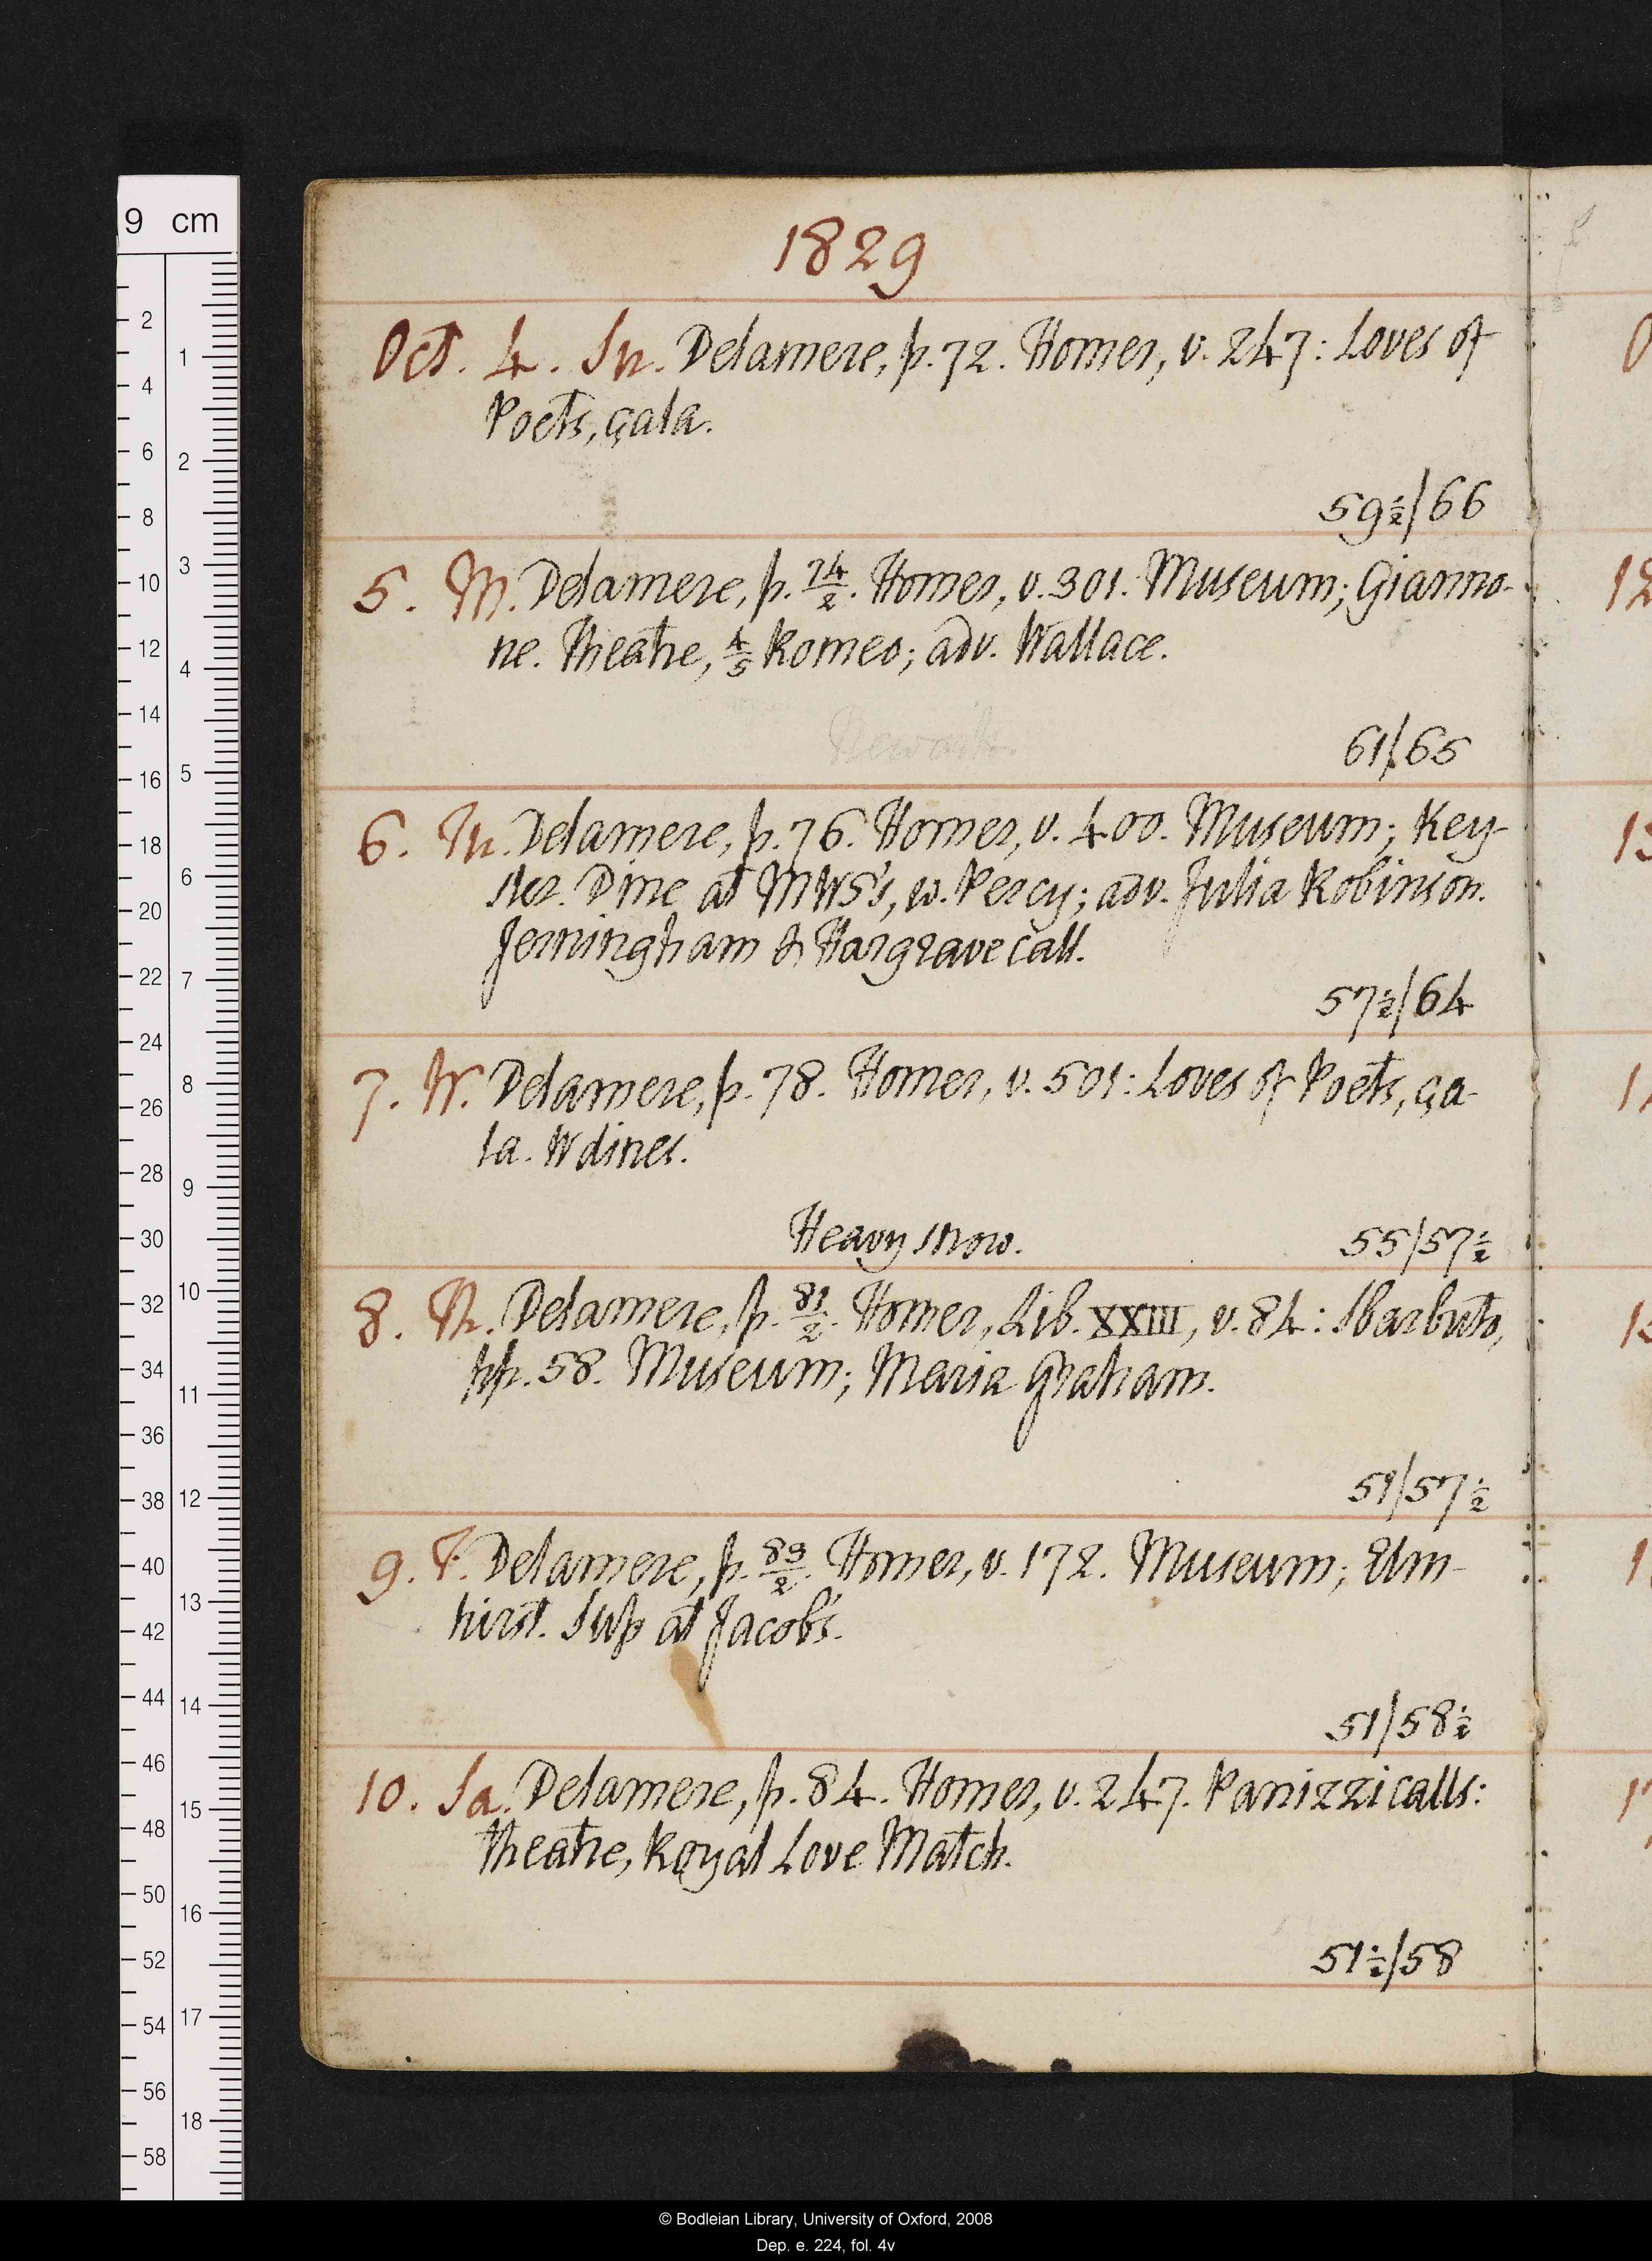 1829
Oct. 4. Su. Delamere, p. 72. Homer, v. 247: Loves of
Poets, çala.
59½/66
5. M. Delamere, p. 74/2. Homer, v. 301. Museum; Gianno-
ne. Theatre, 4/5 Romeo; adv. Wallace.
61/65
6. Tu. Delamere, p. 76. Homer, v. 400. Museum; Key-
sler. Dine at MWS's, w. Percy; adv. Julia Robinson.
Jerningham & Hargrave call.
57½/64
7. W. Delamere, p. 78. Homer, v. 501: Loves of Poets, ça-
la. W dines.
Heavy snow.
55/57½
8. Th. Delamere, p. 81/2. Homer, Lib. XXIII, v. 84: Sbarbuto,
pp. 58. Museum; Maria Graham.
51/57½
9. F. Delamere, p. 83/2. Homer, v. 172. Museum; Elm-
hirst. Sup at Jacob's.
51/58½
10. Sa. Delamere, p. 84. Homer, v. 247. Panizzi calls:
Theatre, Royal Love Match.
51½/58
9 cm
2
4
6
8
10
12
14
16
18
20
22
24
26
28
30
32
34
36
38
40
42
44
46
48
50
52
54
56
58
1
2
3
4
5
6
7
8
9
10
11
12
13
14
15
16
17
18
© Bodleian Library, University of Oxford, 2008
Dep. e. 224, fol. 4v